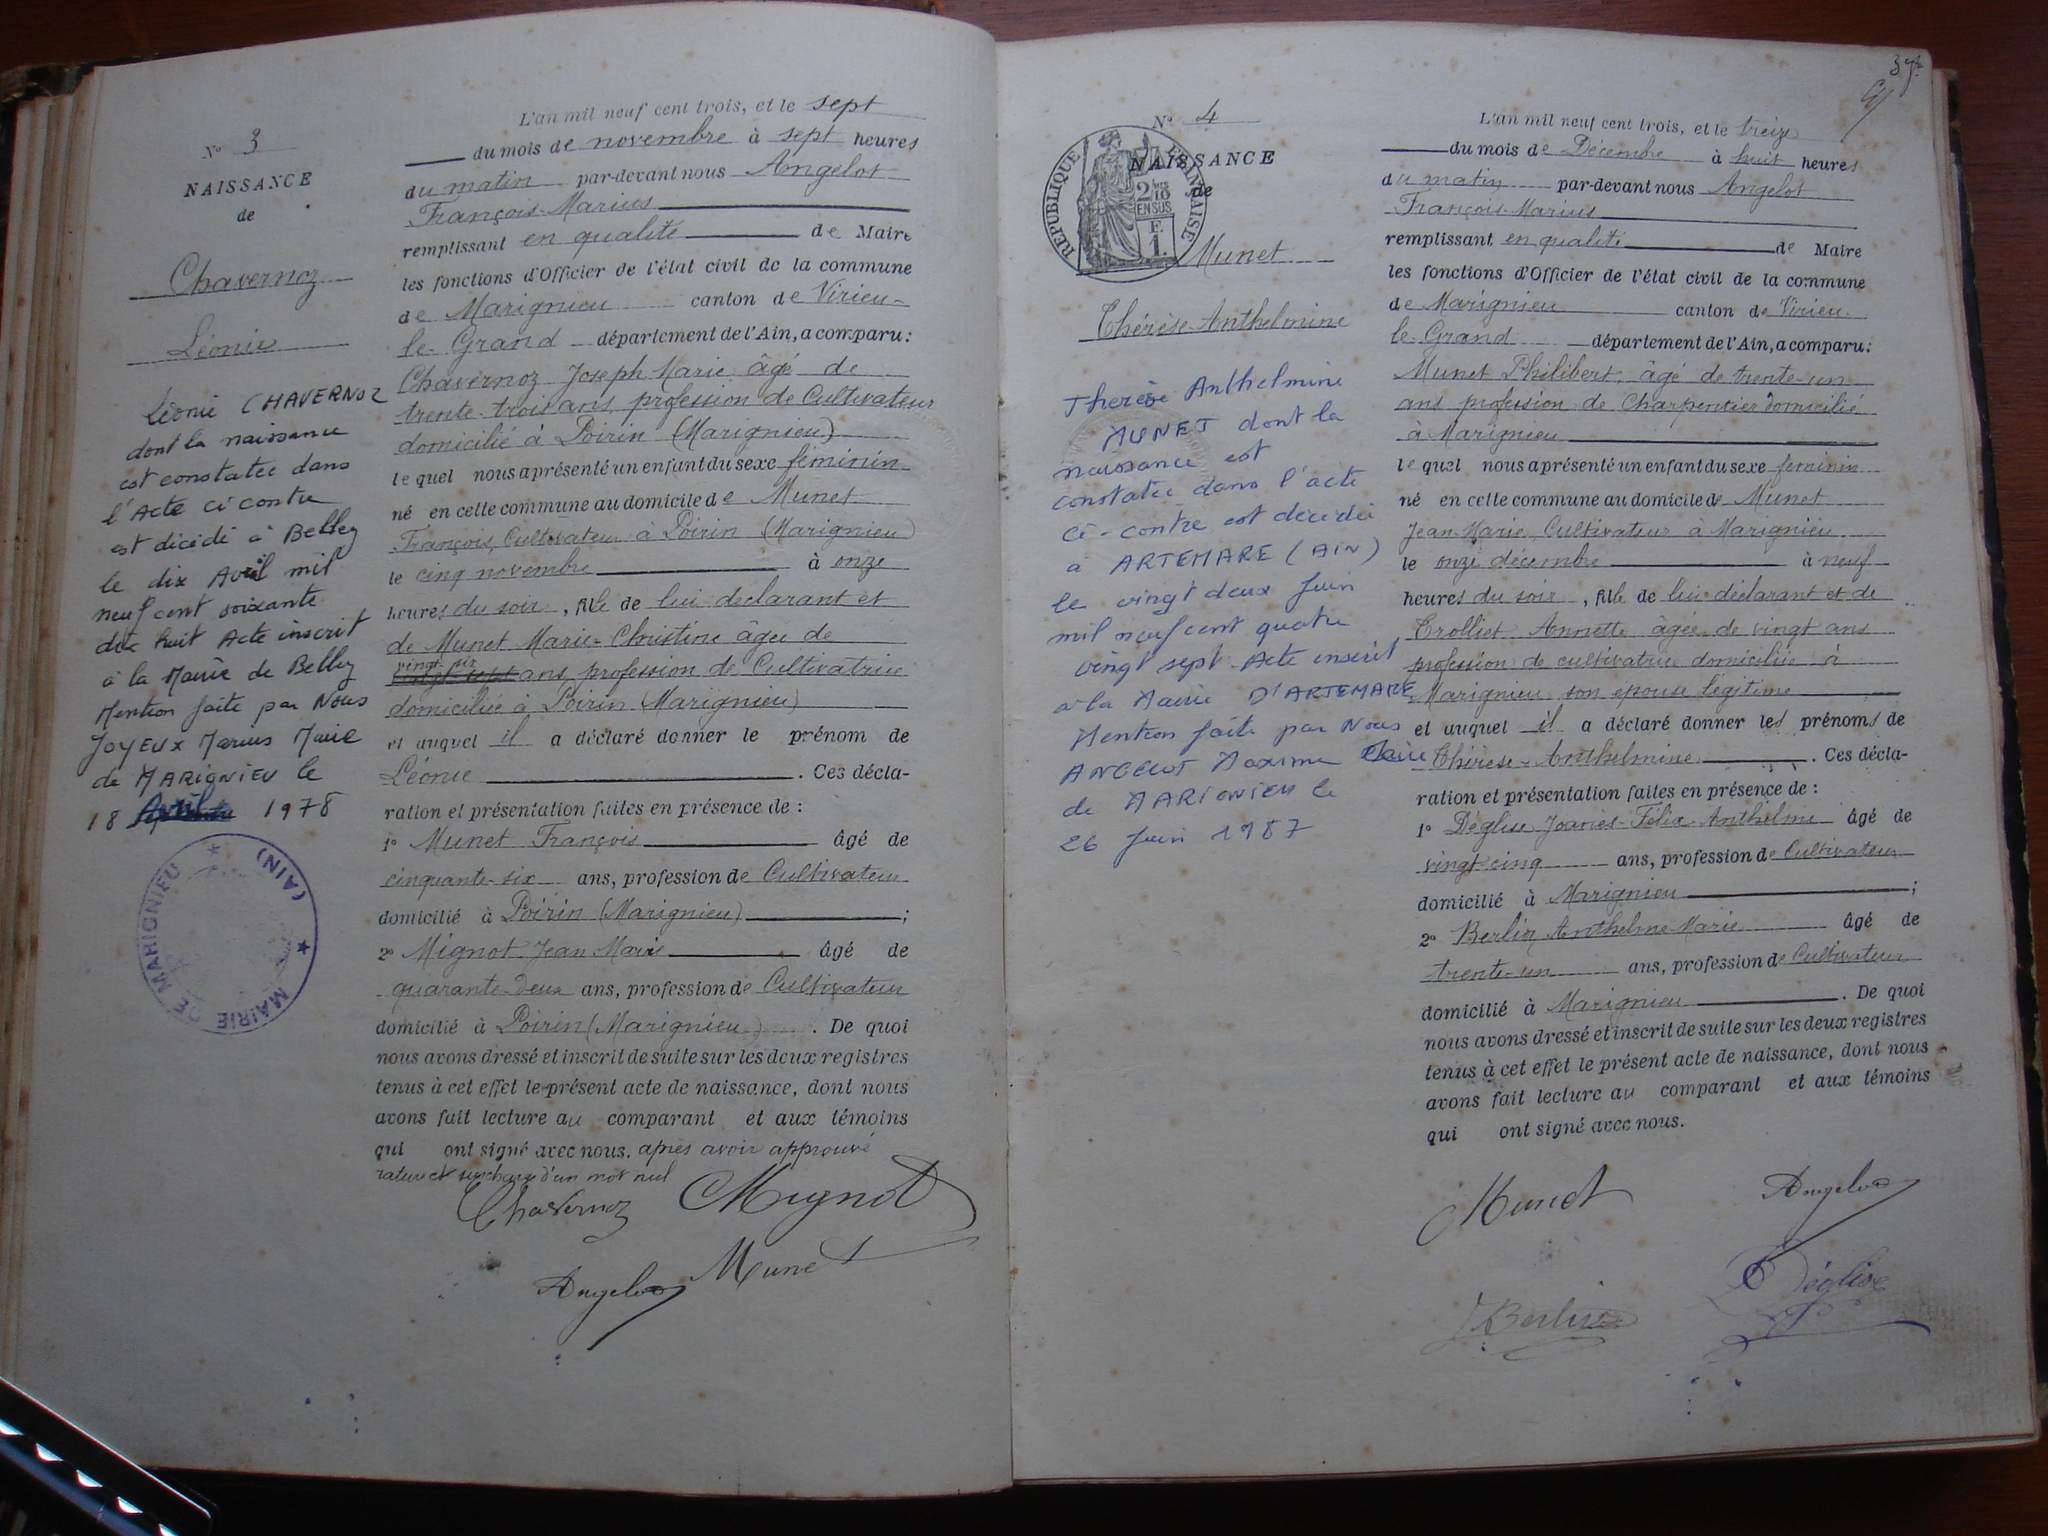 N° 3
NAISSANCE
de
Chavernoz
Léonie
Léonie CHAVERNOZ
dont la naissance
est constatée dans
l'Acte ci contre
est décédé à Belley
le dix Avril mil
neuf cent soixante
dix huit Acte inscrit
à la Mairie de Belley
Mention faite par Nous
JOYEUX Marius Maire
de MARIGNIEU le
18 Avril 1978
MAIRIE DE MARIGNIEU (AIN)
L'an mil neuf cent trois, et le sept
du mois de novembre à sept heures
du matin par-devant nous Angelot
François-Marius
remplissant en qualité de Maire
les fonctions d'Officier de l'état civil de la commune
de Marignieu canton de Virieu-
le-Grand département de l'Ain, a comparu:
Chavernoz Joseph Marie âgé de
trente-trois ans, profession de Cultivateur
domicilié à Poirin (Marignieu)
lequel nous a présenté un enfant du sexe féminin
né en cette commune au domicile de Munet
François, Cultivateur à Poirin (Marignieu)
le cinq novembre à onze
heures du soir, fille de lui déclarant et
de Munet Marie-Christine âgée de
vingt-six
ans, profession de Cultivatrice
domiciliée à Poirin (Marignieu)
et auquel il a déclaré donner le prénom de
Léonie. Ces décla-
ration et présentation faites en présence de :
1° Munet François âgé de
cinquante-six ans, profession de Cultivateur
domicilié à Poirin (Marignieu);
2° Mignot Jean Marie âgé de
quarante-deux ans, profession de Cultivateur
domicilié à Poirin (Marignieu). De quoi
nous avons dressé et inscrit de suite sur les deux registres
tenus à cet effet le présent acte de naissance, dont nous
avons fait lecture au comparant et aux témoins
qui ont signé avec nous. après avoir approuvé
rature et surcharge d'un mot nul
Chavernoz Mignot
Angelot Munet
37
N° 4
NAISSANCE
de
RÉPUBLIQUE FRANÇAISE
2/10 EN SUS
F. 1.
Munet
Thérèse-Anthelmine
Therèse Anthelmine
MUNET dont la
naissance est
constatée dans l'acte
ci-contre est décédée
à ARTEMARE (AIN)
le vingt deux Juin
mil neuf cent quatre
vingt sept. Acte inscrit
a la Mairie D'ARTEMARE
Mention faite par Nous
ANGELOT Maxime Maire
de MARIGNIEU le
26 Juin 1987
L'an mil neuf cent trois, et le treize
du mois de Décembre à huit heures
du matin par-devant nous Angelot
François-Marius
remplissant en qualité de Maire
les fonctions d'Officier de l'état civil de la commune
de Marignieu canton de Virieu-
le-Grand département de l'Ain, a comparu:
Munet Philibert, âgé de trente-un
ans profession de Charpentier domicilié
à Marignieu
lequel nous a présenté un enfant du sexe féminin
né en cette commune au domicile de Munet
Jean-Marie, Cultivateur à Marignieu
le onze décembre à neuf
heures du soir, fille de lui déclarant et de
Trolliet Annette âgée de vingt ans
profession de cultivatrice domiciliée à
Marignieu son épouse légitime
et auquel il a déclaré donner les prénoms de
Thérèse-Anthelmine. Ces décla-
ration et présentation faites en présence de :
1° Déglise Joanes-Félix-Anthelme âgé de
vingt-cinq ans, profession de Cultivateur
domicilié à Marignieu;
2° Berlin Anthelme-Marie âgé de
trente-un ans, profession de Cultivateur
domicilié à Marignieu. De quoi
nous avons dressé et inscrit de suite sur les deux registres
tenus à cet effet le présent acte de naissance, dont nous
avons fait lecture au comparant et aux témoins
qui ont signé avec nous.
Munet Angelot
Berlin Déglise